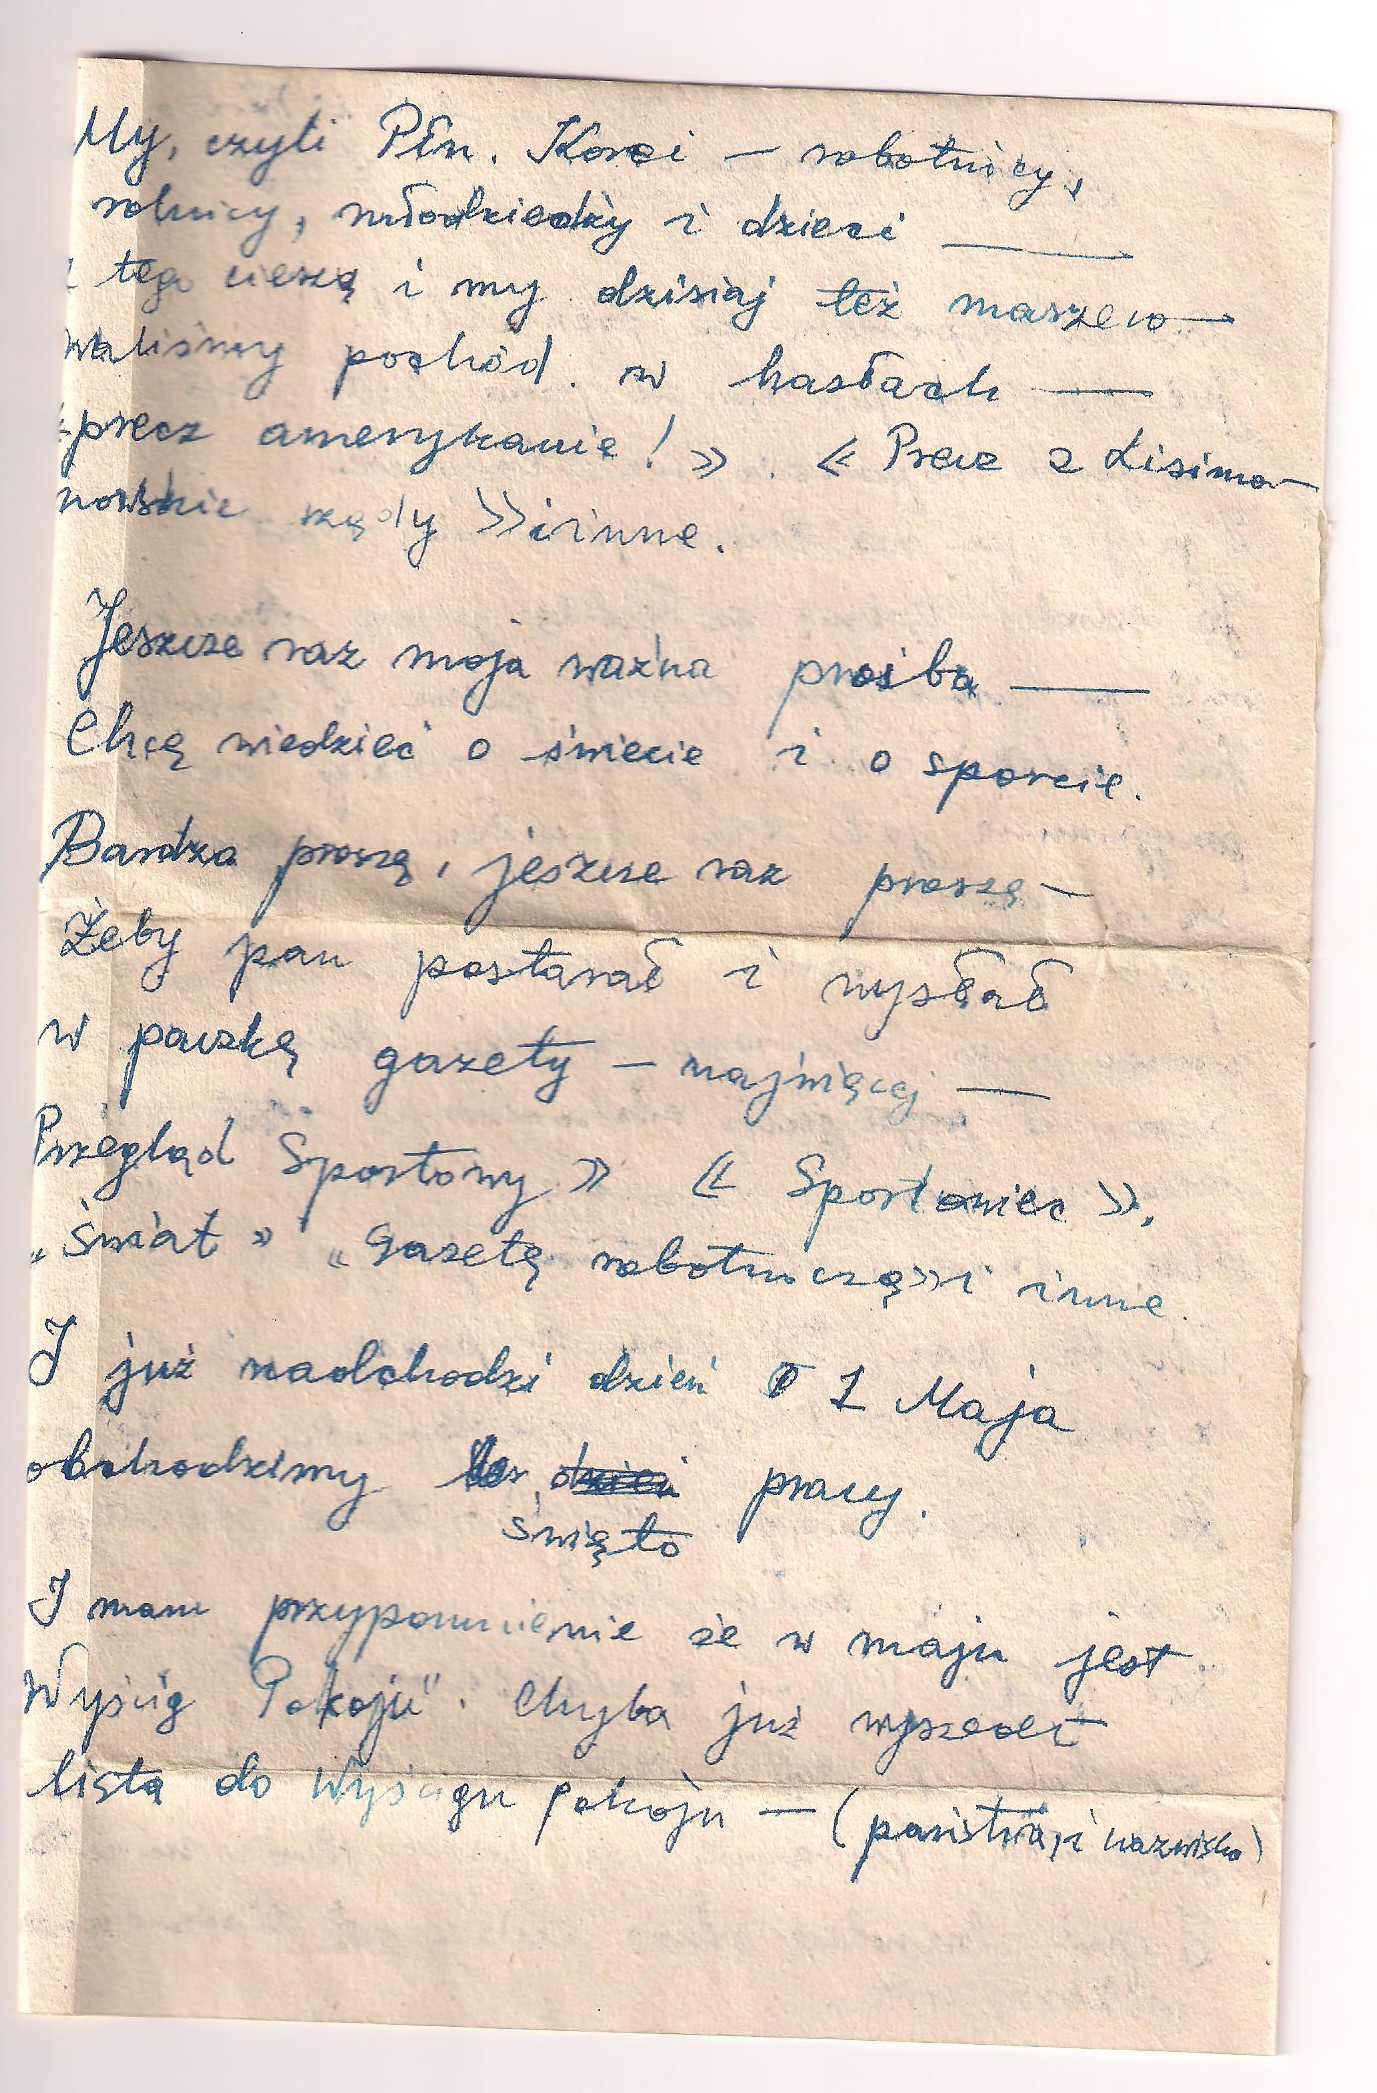 My, czyli Płn. Korei — robotnicy,
rolnicy, młodziedży i dzieci —
z tego cieszą i my dzisiaj też maszero—
waliśmy pochód. w hasłach —
«precz amerykanie!». «Precz z Lisinma—
nowskie rządy»i inne.
Jeszcze raz moja ważna prośba —
Chcę wiedzieć o świecie i o sporcie.
Bardzo proszę, jeszcze raz proszę —
Żeby pan postarał i wysłał
w paczkę gazety — najwięcej —
Przegląd Sportowy» «Sportowiec».
„Świat» «Gazetę robotniczą»i inne.
I już nadchodzi dzień 1 Maja
obchodzimy dzień pracy.
święto
I mam przypomnienie że w maju jest
Wyścig Pokoju". Chyba już wyszedł
lista do Wyścigu pokoju — (państwa, i nazwiska)